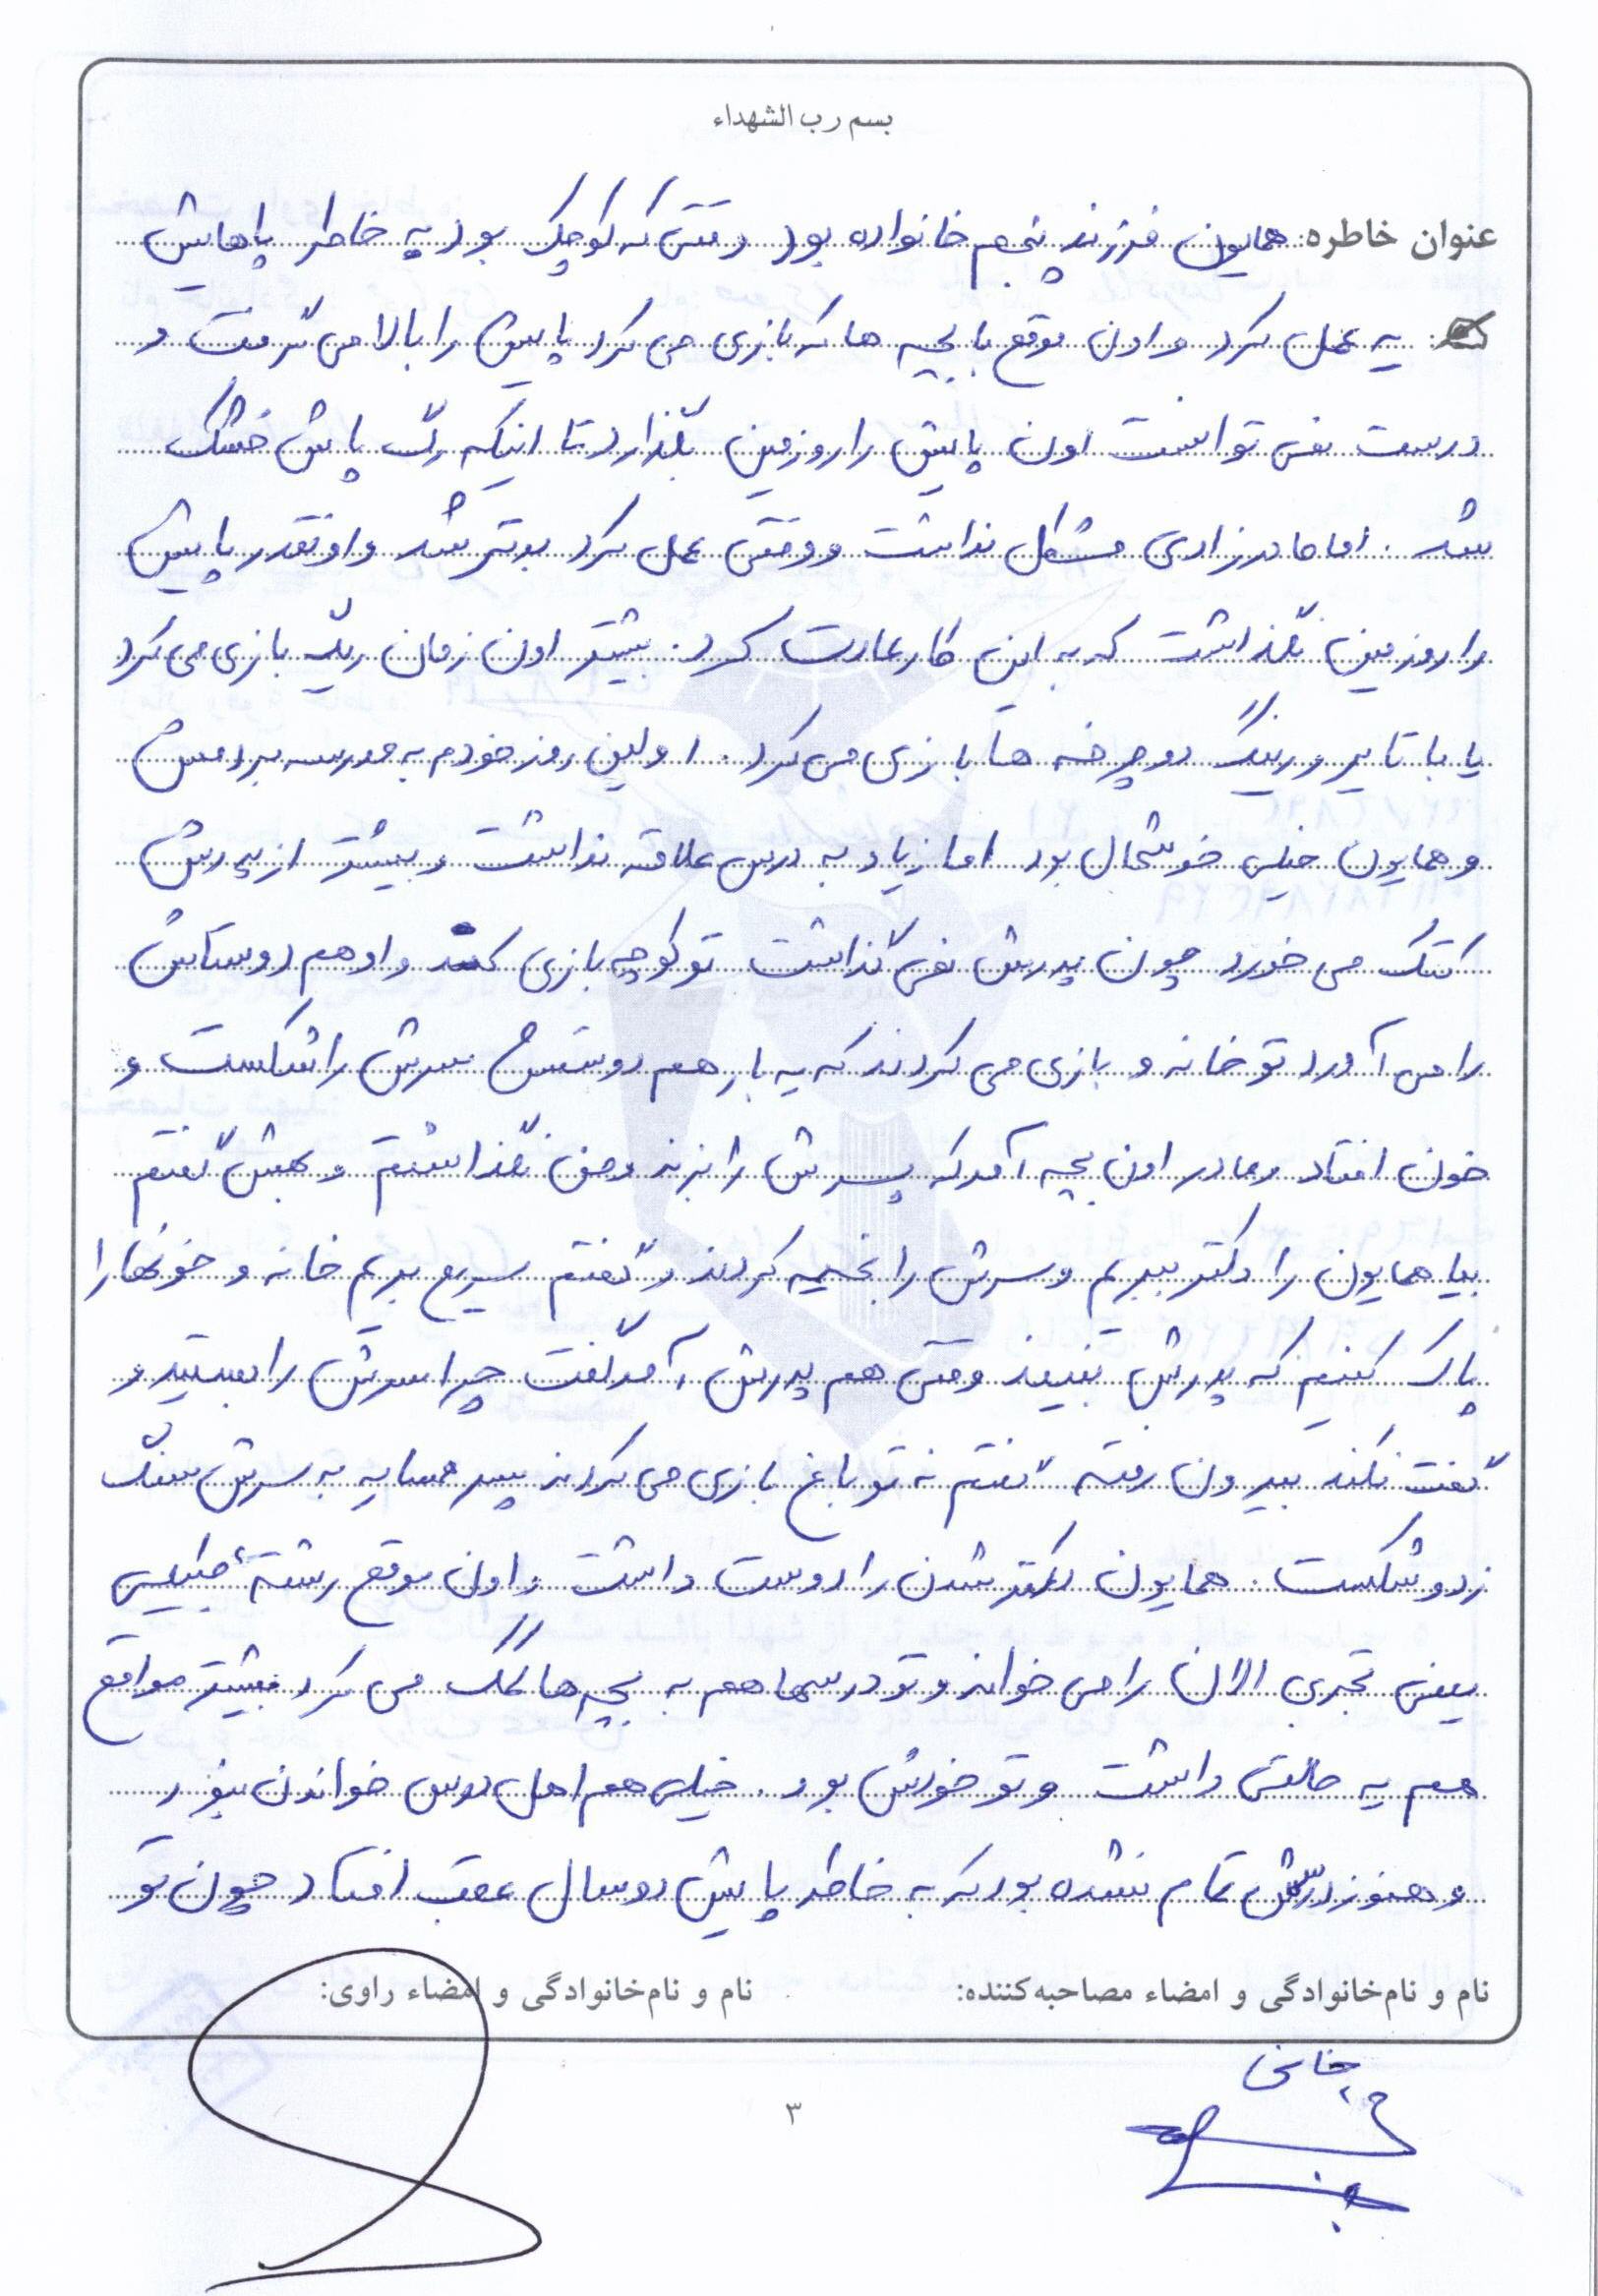 بسم رب الشهداء
عنوان خاطره: همایون فرزند پنجم خانواده بود وقتی که کوچک بود به خاطر پاهایش
یه عمل کرد و اون موقع با بچه ها که بازی می کرد پایش را بالا می گرفت و
درست نمی توانست اون پایش را رو زمین بگذارد تا اینکه رگ پاش خشک
شد. اما مادرزادی مشکل نداشت و وقتی عمل کرد بدتر شد و اونقدر پایش
را رو زمین نگذاشت که به این کار عادت کرد. بیشتر اون زمان ریگ بازی می کرد
یا با تایر و رینگ دوچرخه ها بازی می کرد. اولین روز خودم به مدرسه بردمش
و همایون خیلی خوشحال بود اما زیاد به درس علاقه نداشت و بیشتر از پدرش
کتک می خورد چون پدرش نمی گذاشت تو کوچه بازی کند و او هم دوستاش
را می آورد تو خانه و بازی می کردند که یه بار هم دوستش سرش را شکست و
خون افتاد و مادر اون بچه آمد که پسرش را بزند و من نگذاشتم و بهش گفتم
بیا همایون را دکتر ببریم و سرش را بخیه کردند و گفتم سریع بریم خانه و خونها را
پاک کنیم که پدرش نبیند وقتی هم پدرش آمد گفت چرا سرش را بستید و
گفت نکند بیرون رفته گفتم نه تو باغ بازی می کردند پسر همسایه به سرش سنگ
زد و شکست. همایون دکتر شدن را دوست داشت و اون موقع رشتهٔ طبیعی
یعنی تجربی الان را می خواند و تو درسها هم به بچه ها کمک می کرد بیشتر مواقع
هم یه حالتی داشت و تو خودش بود. خیلی هم اهل درس خواندن نبود
و هنوز درسش تمام نشده بود که به خاطر پایش دو سال عقب افتاد چون تو
نام و نام‌خانوادگی و امضاء مصاحبه‌کننده:
نام و نام‌خانوادگی و امضاء راوی:
خانی
۳